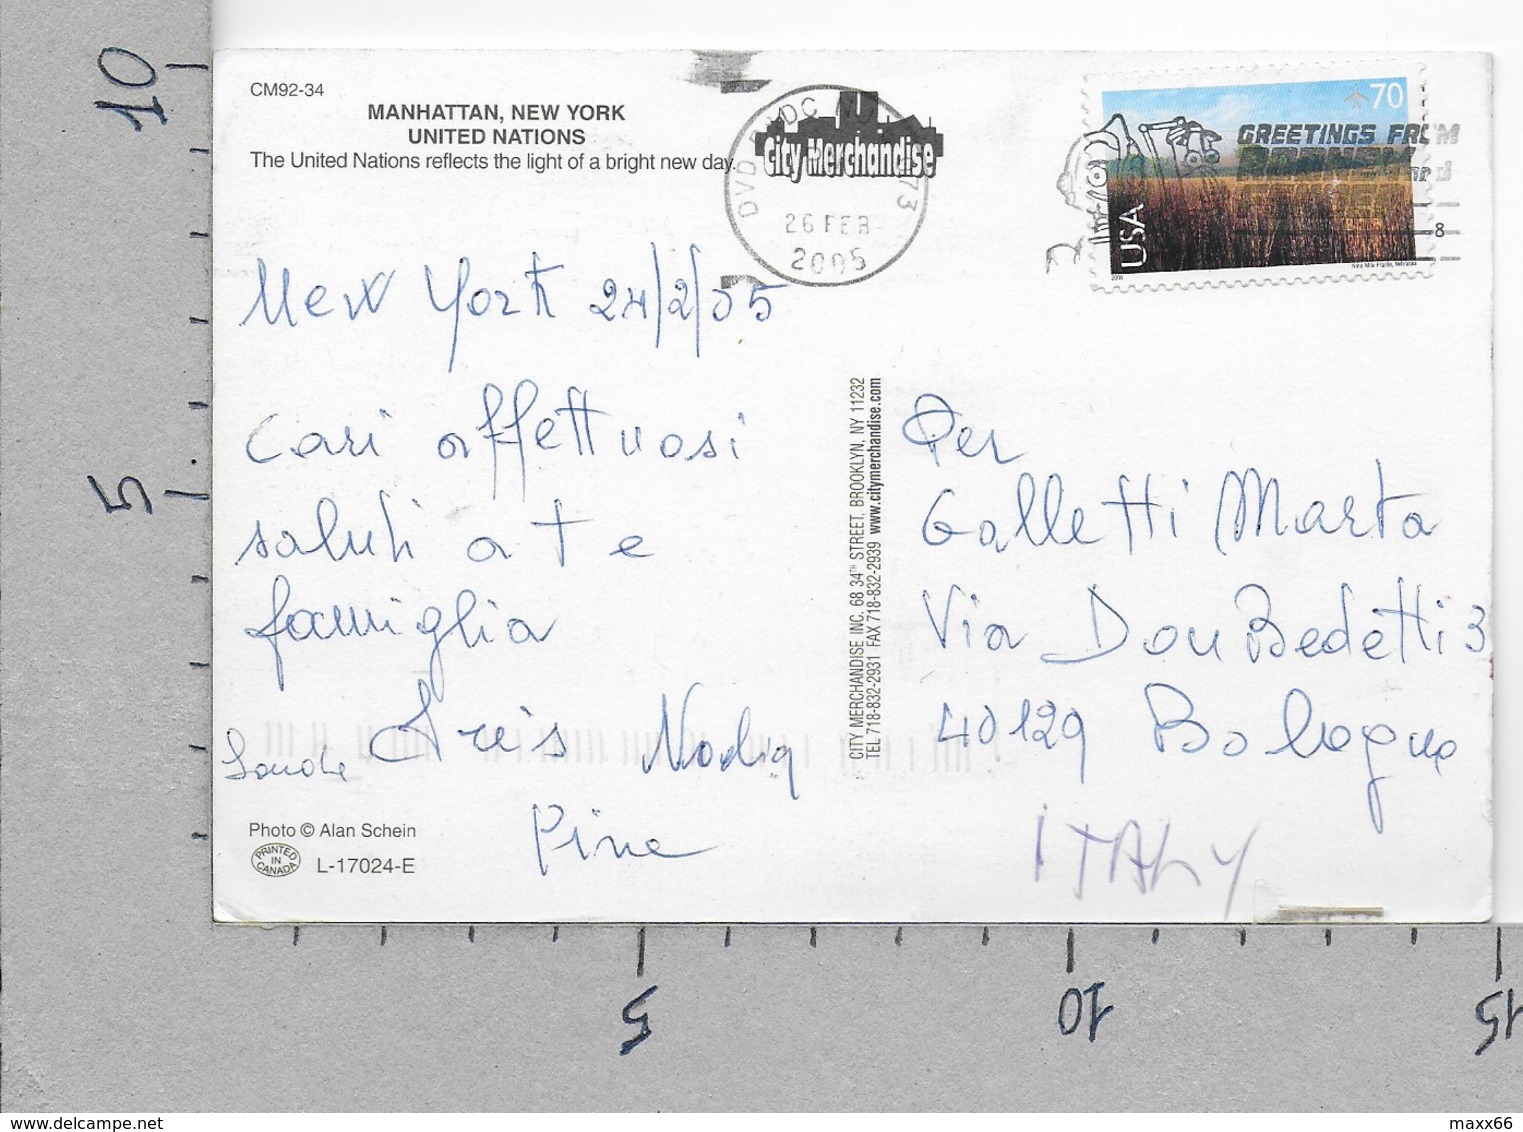 CM92-34
MANHATTAN, NEW YORK
UNITED NATIONS
The United Nations reflects the light of a bright new day.
City Merchandise
DVD
26 FEB
2005
70
USA
Nine-Mile Prairie, Nebraska
GREETINGS FROM
8
New York 24/2/05
Cari affettuosi
saluti a te e
famiglia
Iris Nadia
Pina
Photo © Alan Schein
PRINTED
IN
CANADA
L-17024-E
CITY MERCHANDISE INC. 68 34TH STREET, BROOKLYN, NY 11232
TEL 718-832-2931 FAX 718-832-2939 www.citymerchandise.com
Per
Galletti Marta
Via Don Bedetti 3
40129 Bologna
ITALY
10
5
5
10
15
delcampe.net
maxx66